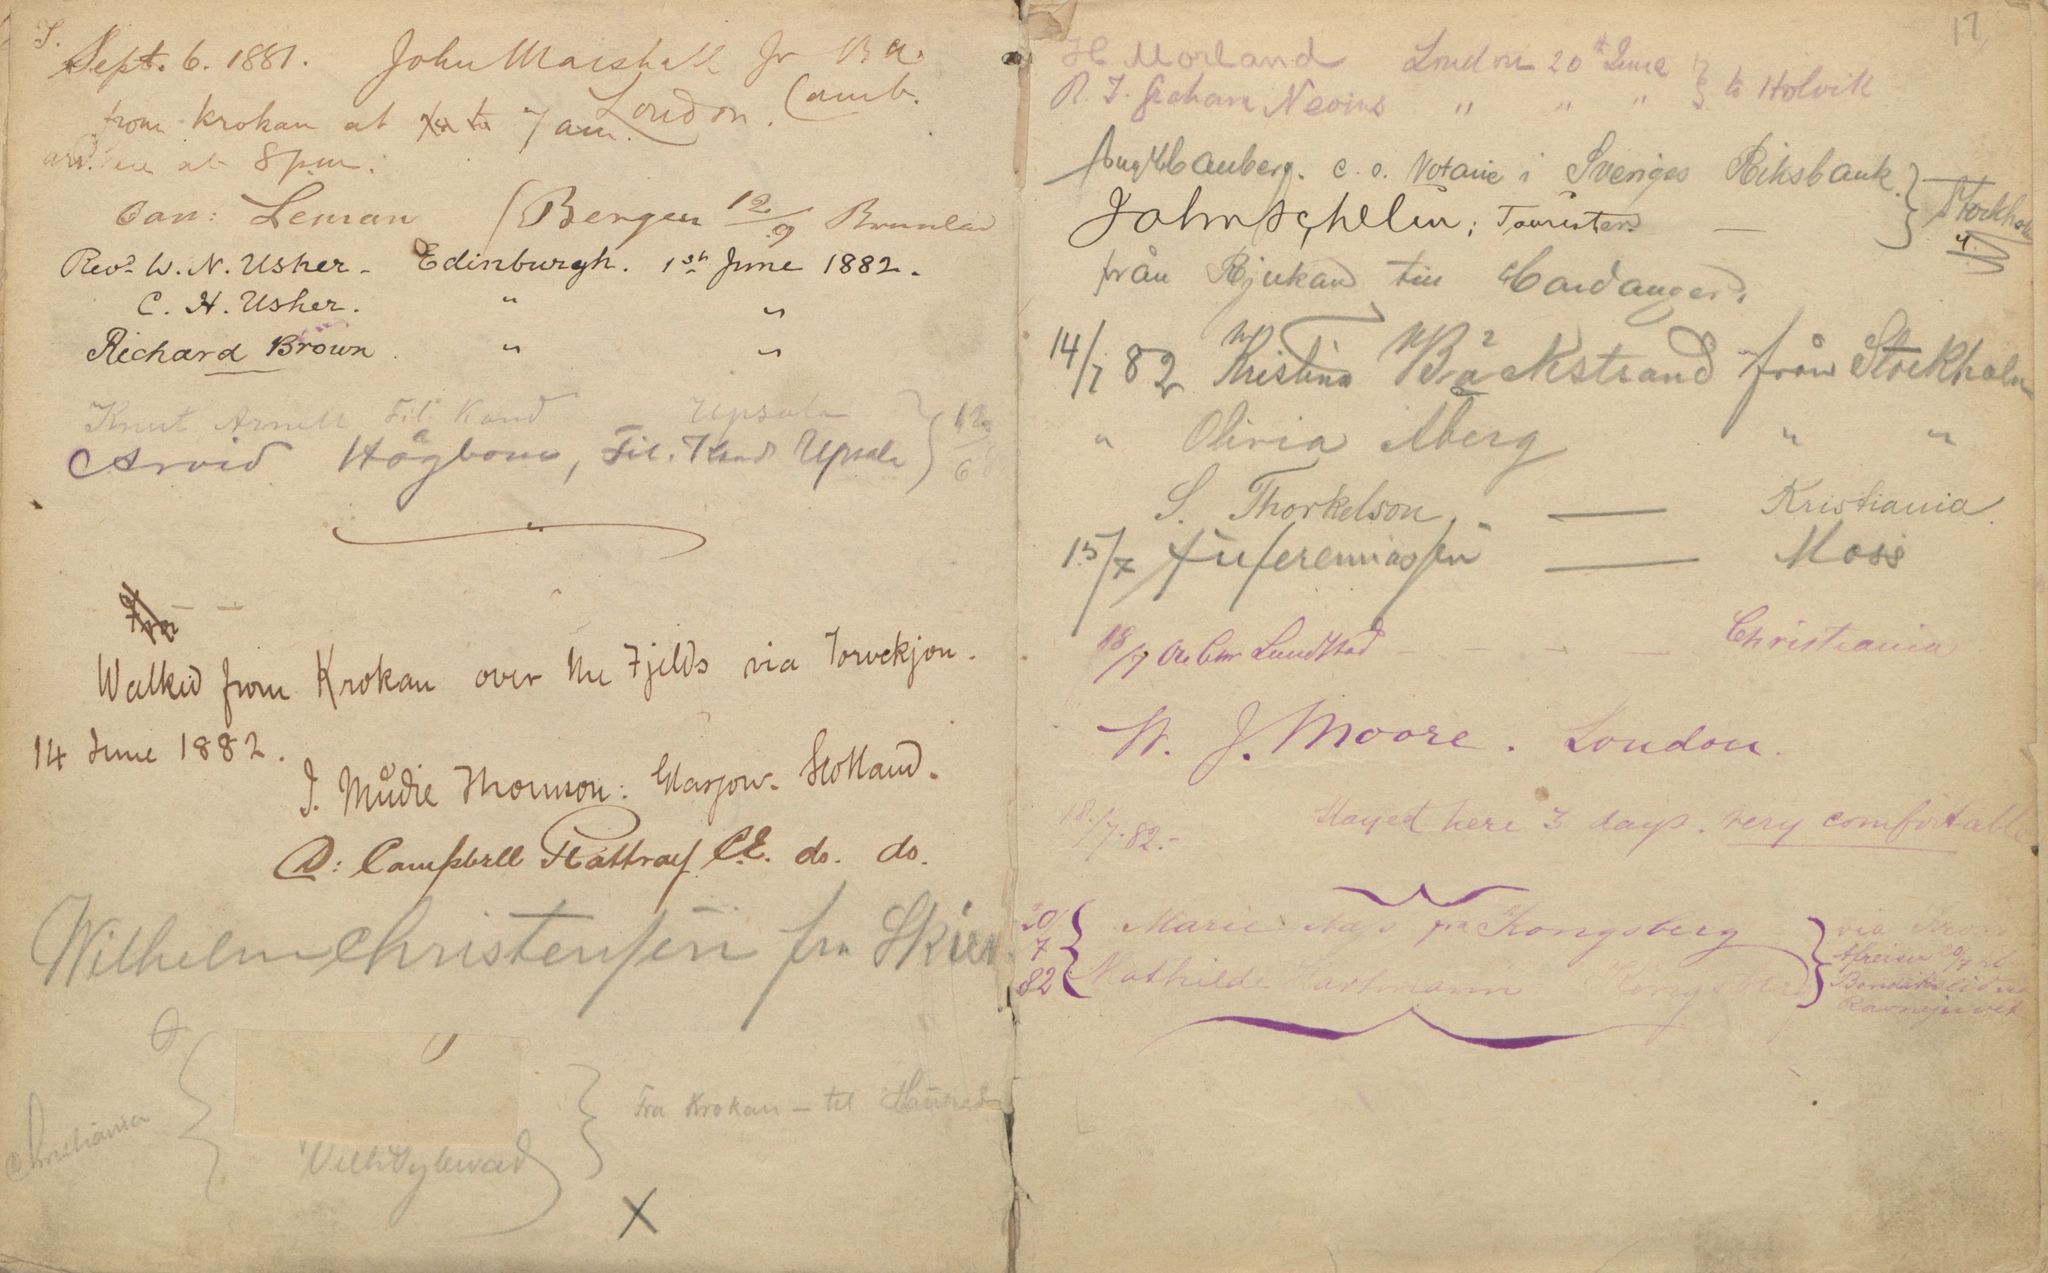 Sept. 6. 1881. John Marshall Jr B A.
Camb.
from Krokan at 7 am. London.
arrd. here at 8 pm.
Can: Leman (Bergen 12/9
Revd. W. N. Usher - Edinburgh. 1st June 1882.
C. H. Usher. " "
Richard Brown. " "
Knut Arnell Fil. Kand Upsala } 12/6
Arvid Högbom, Fil. Kand Upsala
Walked from Krokan over the Fjelds via Torvekjon.
14 June 1882.
J. Mudie Thomson: Glasgow. Scotland.
D: Campbell Rattray C.E. do. do.
Wilhelm Christensen fra Skien
Christiania { } Fra Krokan - til
X
17
H Morland London 20th June } to Holvik
R. T. Graham Nevins " " "
Aug Hauberg. e. o. Notarie i Sveriges Riksbank. } Stockholm
John Schelin; Tourister. —
från Rjukand till Hardanger.
14/7 82 Kristina Bäckstrand från Stockholm
" Olivia Åberg " "
S. Thorkelson. — Kristiania.
15/7 — Moss
18/7 Lundstad - - - - Christiania
W. J. Moore. London.
18./7.82.- Stayed here 3 days. very comfortable
20/7 82 { Marie Aas fra Kongsberg } via
Mathilde Hartmann Kongsberg
Afreiser 20/7